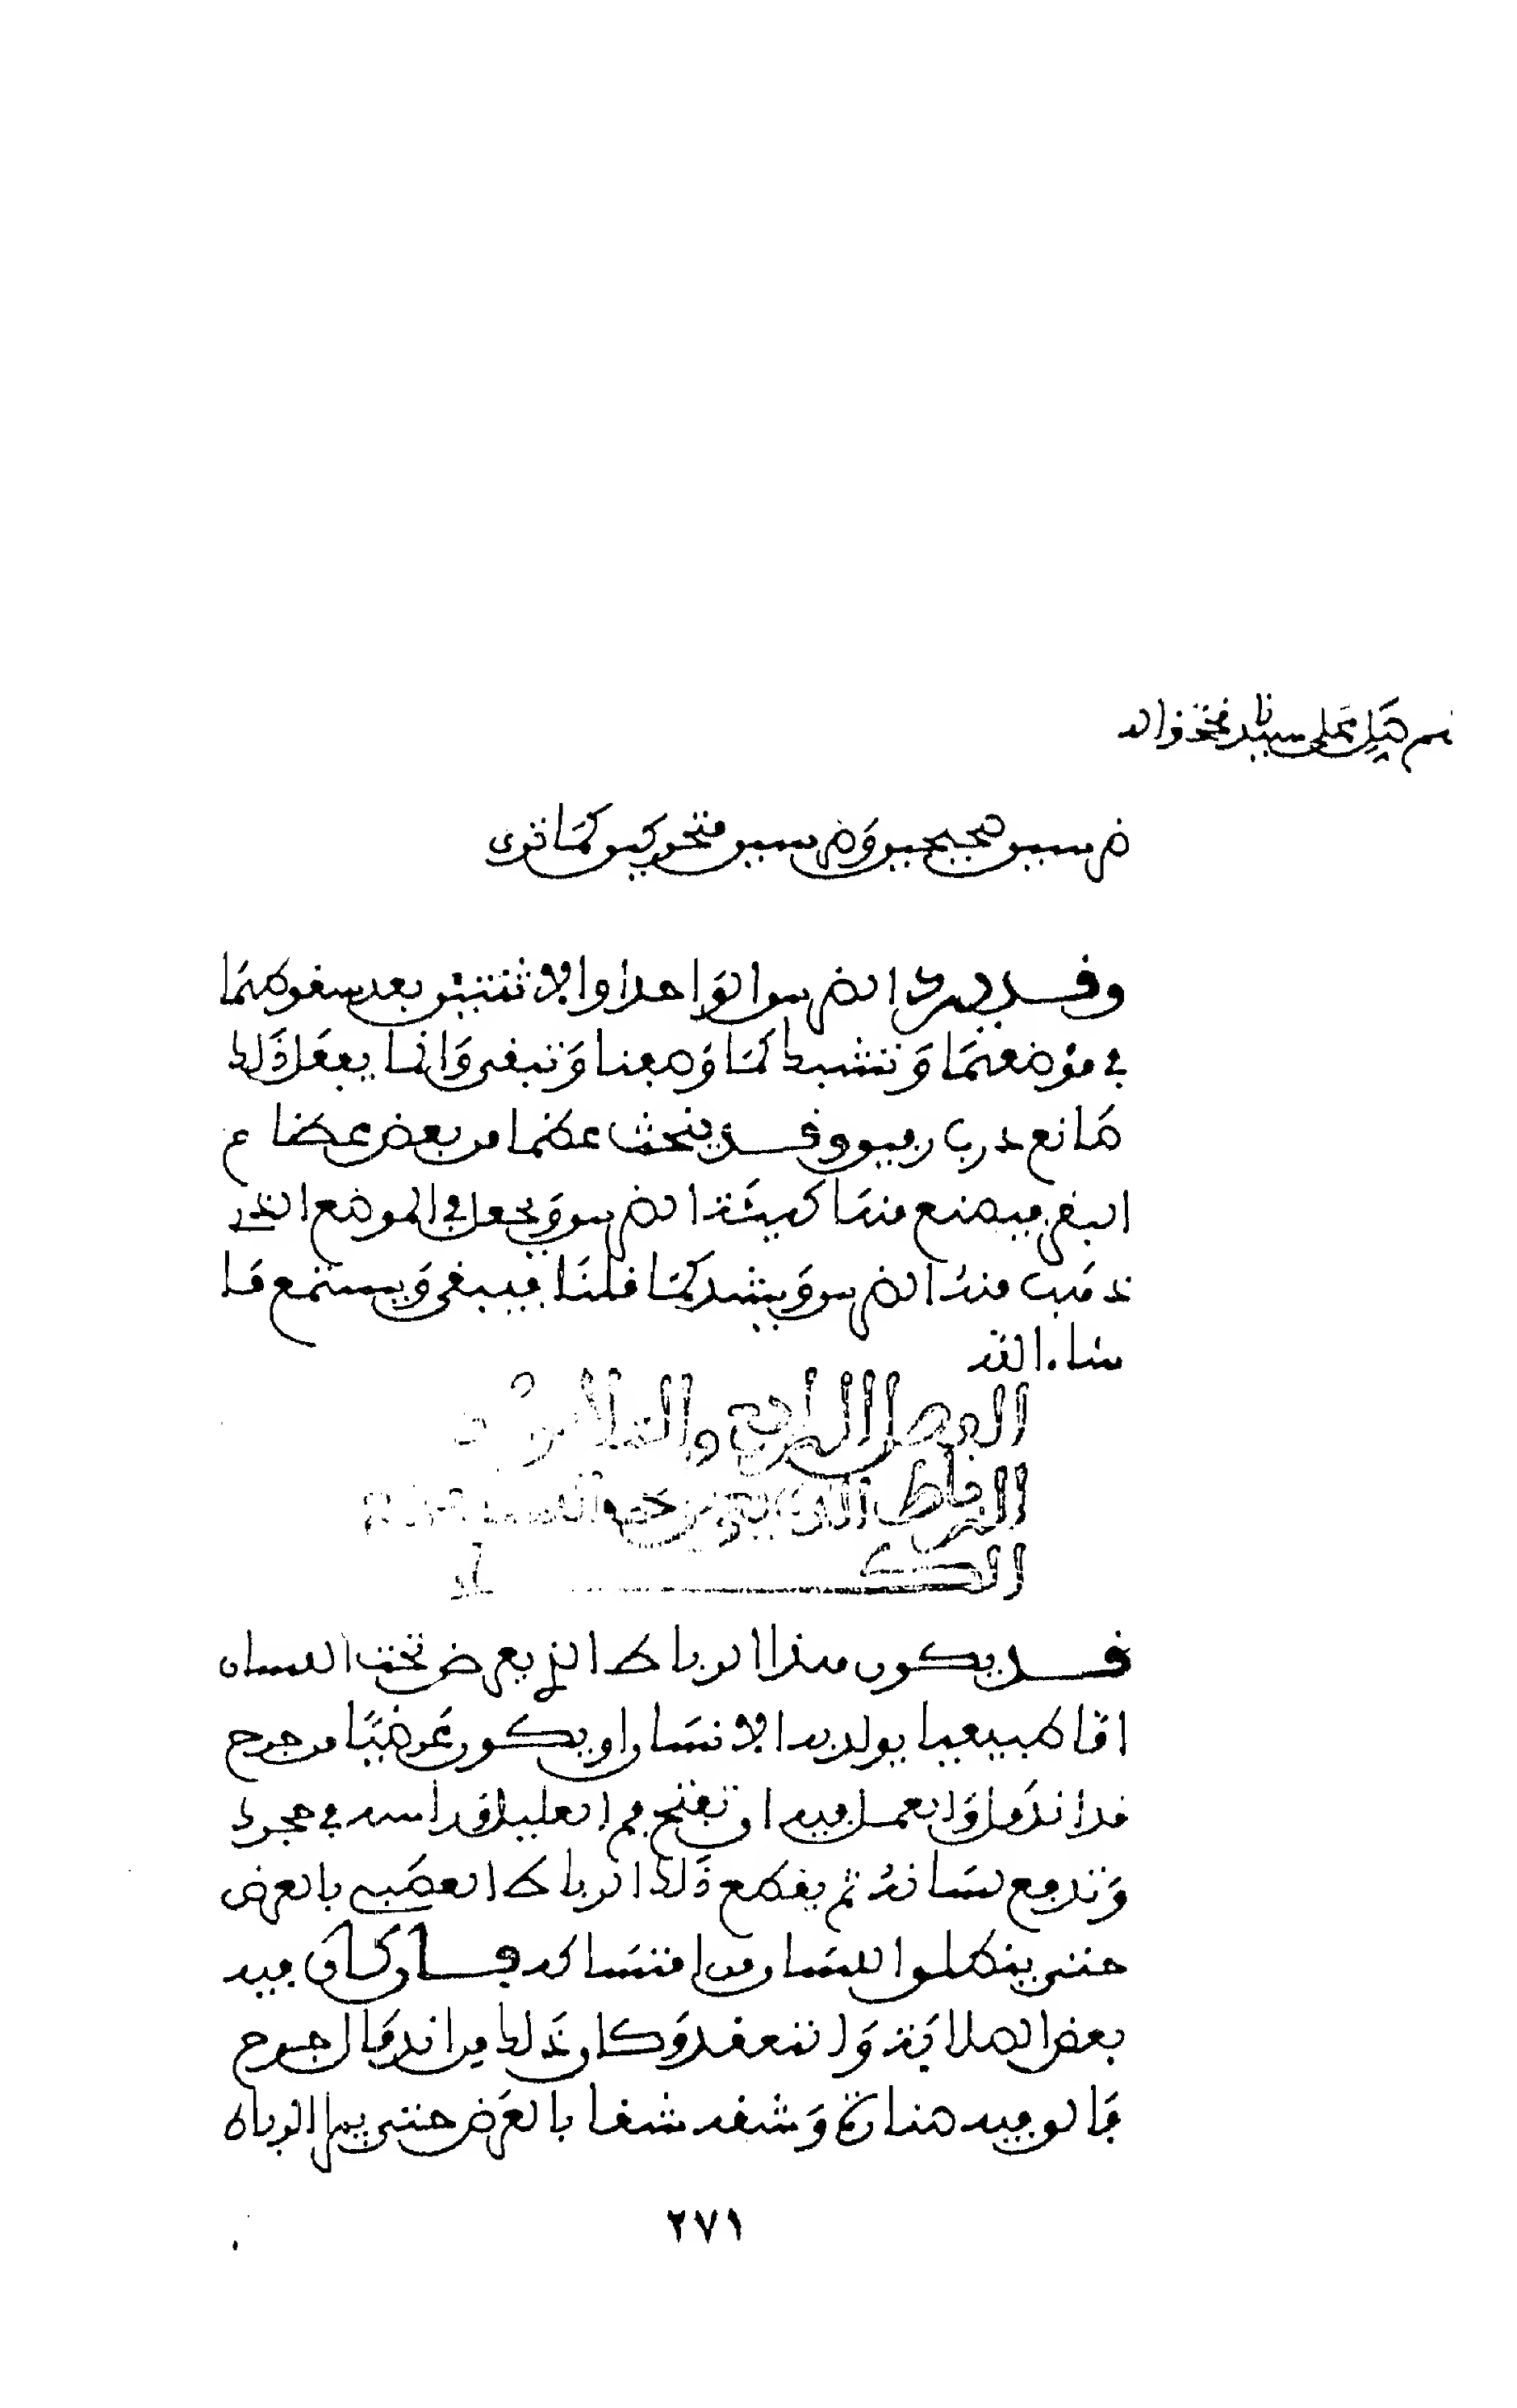 ضرسين صحيحين وضرسين متحركين كما ترى
وقد يرد الضرس الواحد او الاثنتين بعد سقوطهما
في موضعهما وتشبك كما وصفنا وتبقى وانما يفعل ذلك
صانع درب رفيق وقد ينحت عظما من بعض عظام
البقر فيصنع منها كهيئة الضرس ويجعل في الموضع الذي
ذهب منه الضرس ويشد كما قلنا فيبقى ويستمتع ما
شاء الله
الفصل الرابع والثلاثون
الرباط الذي يعرض تحت اللسان
الكلام
قد يكون هذا الرباط الذي يعرض تحت اللسان
اما طبيعيا يولد به الانسان او يكون عرضيا من جرح
قد اندمل والعمل فيه ان تفتح فم العليل وراسه في حجرك
وترفع لسانه ثم يقطع ذلك الرباط العصبي بالعرض
حتى ينطلق اللسان من امتساكه فان كان فيه
بعض الصلابة والتعقد وكان ذلك من اندمال جرح
فالق فيه صنارة وشقه شقا بالعرض حتى يبرا الرباط
٢٧١